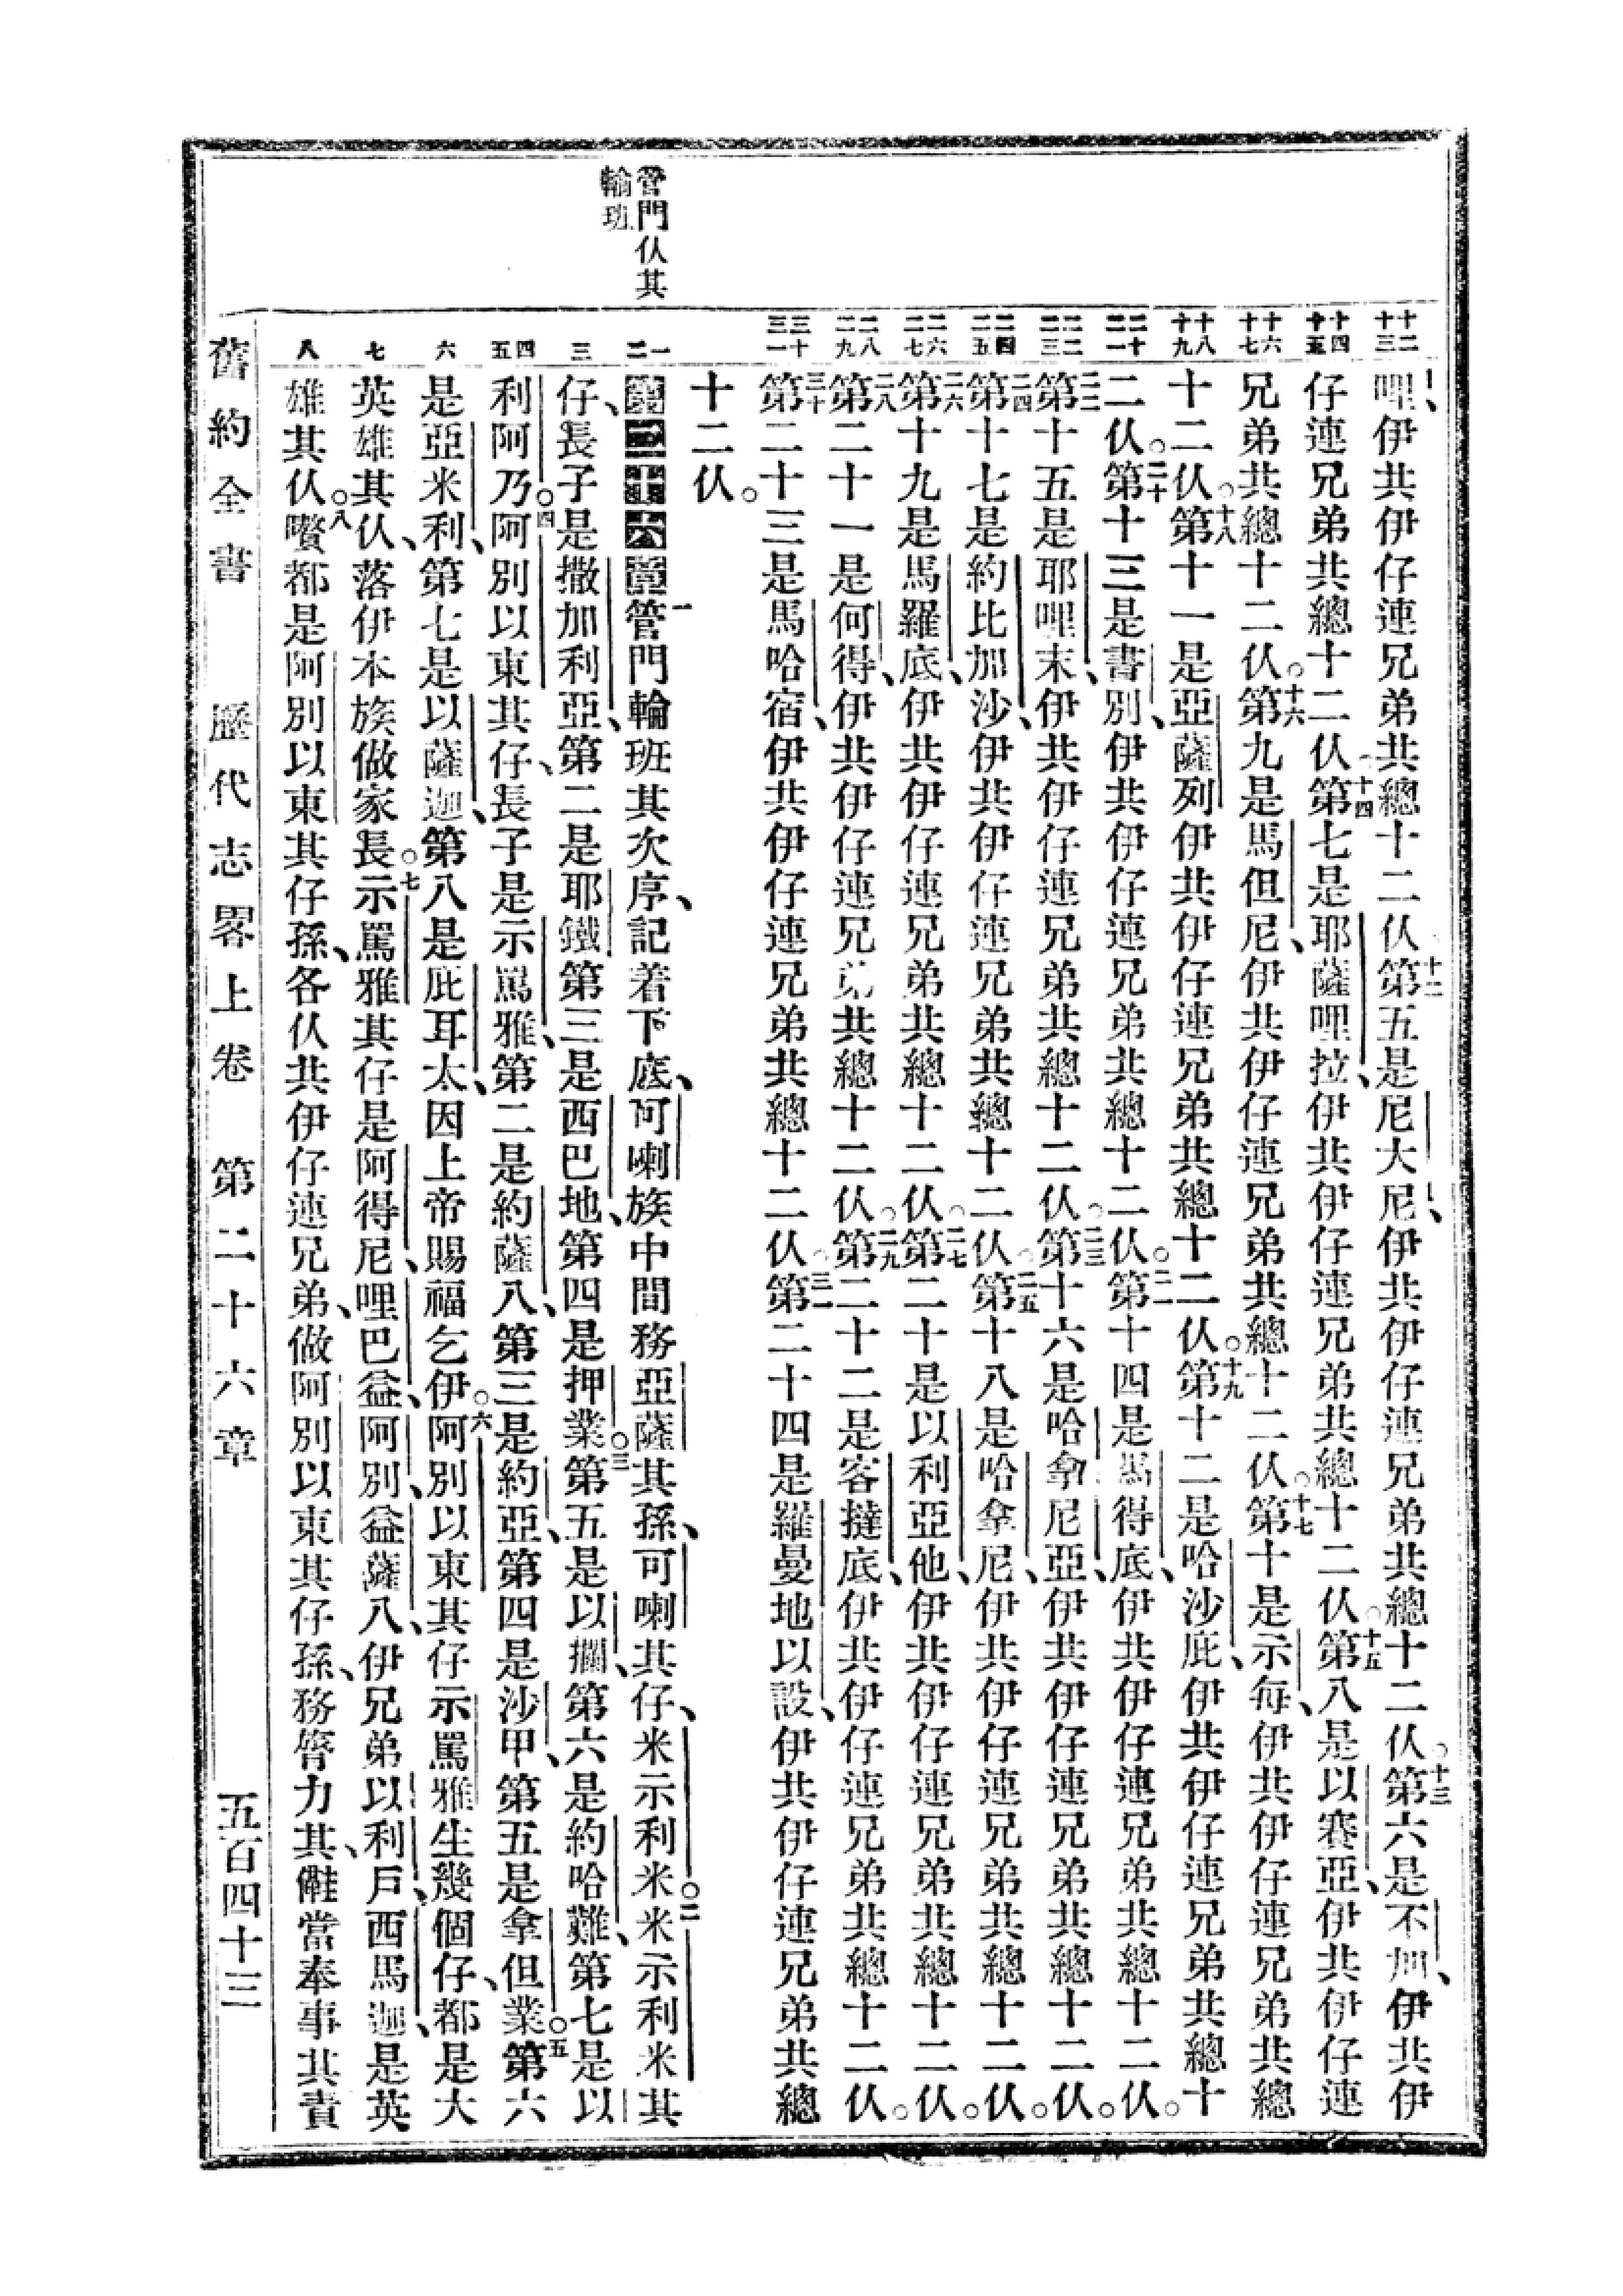 管門仈其
輪班
十二
十三
十四
十五
十六
十七
十八
十九
二十
二一
二二
二三
二四
二五
二六
二七
二八
二九
三十
三一
一
二
三
四
五
六
七
八
哩、伊共伊仔連兄弟共總十二仈、十二第五是尼大尼、伊共伊仔連兄弟共總十二仈。十三第六是不加、伊共伊
仔連兄弟共總十二仈。十四第七是耶薩哩拉、伊共伊仔連兄弟共總十二仈。十五第八是以賽亞、伊共伊仔連
兄弟共總十二仈。十六第九是馬但尼、伊共伊仔連兄弟共總十二仈。十七第十是示每、伊共伊仔連兄弟共總
十二仈。十八第十一是亞薩列伊共伊仔連兄弟共總十二仈。十九第十二是哈沙庇、伊共伊仔連兄弟共總十
二仈。二十第十三是書別、伊共伊仔連兄弟共總十二仈。二一第十四是馬得底、伊共伊仔連兄弟共總十二仈。
二二第十五是耶哩末、伊共伊仔連兄弟共總十二仈。二三第十六是哈拿尼亞、伊共伊仔連兄弟共總十二仈。
二四第十七是約比加沙、伊共伊仔連兄弟共總十二仈。二五第十八是哈拿尼、伊共伊仔連兄弟共總十二仈。
二六第十九是馬羅底、伊共伊仔連兄弟共總十二仈。二七第二十是以利亞他、伊共伊仔連兄弟共總十二仈。
二八第二十一是何得、伊共伊仔連兄弟共總十二仈。二九第二十二是客撻底、伊共伊仔連兄弟共總十二仈。
三十第二十三是馬哈宿、伊共伊仔連兄弟共總十二仈。三一第二十四是羅曼地以設、伊共伊仔連兄弟共總
十二仈。
第二十六章一管門輪班其次序、記着下底、可喇族中間務亞薩其孫、可喇其仔、米示利米。二米示利米其
仔、長子是撒加利亞、第二是耶鐵第三是西巴地、第四是押業。三第五是以攔、第六是約哈難、第七是以
利阿乃。四阿別以東其仔、長子是示罵雅、第二是約薩八、第三是約亞、第四是沙甲、第五是拿但業。五第六
是亞米利、第七是以薩迦、第八是庇耳太、因上帝賜福乞伊。六阿別以東其仔示罵雅生幾個仔、都是大
英雄其仈、落伊本族做家長。七示罵雅其仔是阿得尼、哩巴益、阿別、益薩八、伊兄弟以利戶、西馬迦、是英
雄其仈。八囋都是阿別以東其仔孫、各仈共伊仔連兄弟、做阿別以東其仔孫、務膂力其、㒧當奉事其責
舊約全書 歷代志畧上卷 第二十六章 五百四十三